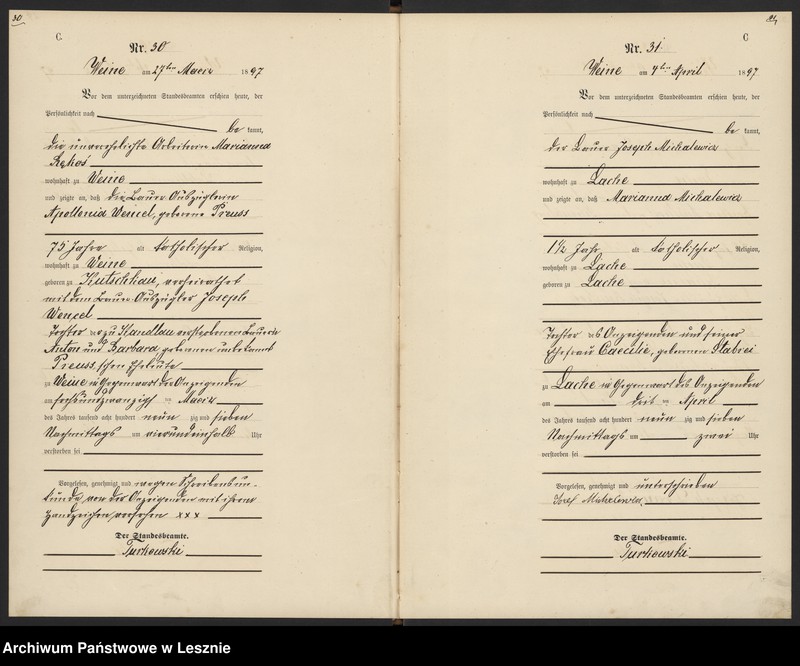 30
C.
Nr. 30
Weine am 27ten Maerz 1897
Vor dem unterzeichneten Standesbeamten erschien heute, der
Persönlichkeit nach
be kannt,
die unverehelichte Arbeiterin Marianna
wohnhaft zu Weine
und zeigte an, daß die Bauer Auszüglerin
Apollonia Wencel, geborene Preuss
75 Jahre alt katholischer Religion,
wohnhaft zu Weine
geboren zu Kutschkau, verheirathet
mit dem Bauer Auszügler Joseph
Wencel
Tochter der zu verstorbenen Bauer
Anton und Barbara geborenen unbekannt
Preuss'schen Eheleute
zu Weine in Gegenwart der Anzeigenden
am sechsundzwanzigsten Maerz
des Jahres tausend acht hundert neun zig und sieben
Nachmittags um vierundeinhalb Uhr
verstorben sei
Vorgelesen, genehmigt und wegen Schreibensun-
kunde von der Anzeigenden mit ihrem
Handzeichen versehen xxx
Der Standesbeamte.
Turkowski
31
C
Nr. 31.
Weine am 4ten April 1897
Vor dem unterzeichneten Standesbeamten erschien heute, der
Persönlichkeit nach
be kannt,
der Bauer Joseph Michalewicz
wohnhaft zu Lache
und zeigte an, daß Marianna Michalewicz
1½ Jahr alt katholischer Religion,
wohnhaft zu Lache
geboren zu Lache
Tochter des Anzeigenden und seiner
Ehefrau Caecilie, geborenen
zu Lache in Gegenwart des Anzeigenden
am drit ten April
des Jahres tausend acht hundert neun zig und sieben
Nachmittags um zwei Uhr
verstorben sei
Vorgelesen, genehmigt und unterschrieben
Josef
Der Standesbeamte.
Turkowski
Archiwum Państwowe w Lesznie